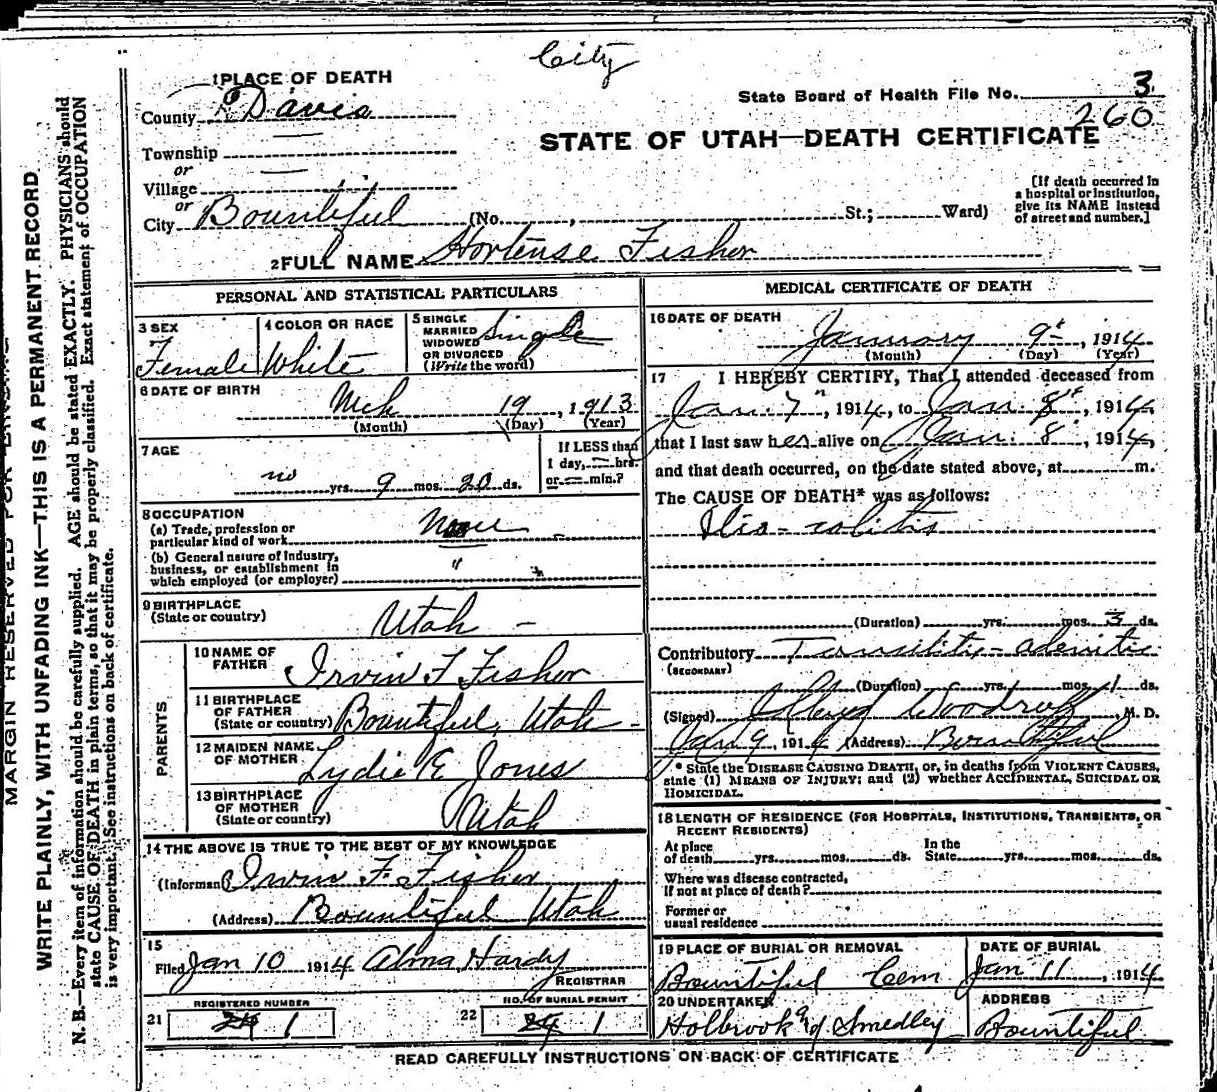 City
1 PLACE OF DEATH
County Davis
State Board of Health File No. 3
260
STATE OF UTAH—DEATH CERTIFICATE
Township
or
Village
or
City Bountiful (No. , St.; Ward)
[If death occurred in
a hospital or institution,
give its NAME instead
of street and number.]
2 FULL NAME Hortense Fisher
PERSONAL AND STATISTICAL PARTICULARS
3 SEX
Female
4 COLOR OR RACE
White
5 SINGLE
MARRIED
WIDOWED
OR DIVORCED
(Write the word)
Single
6 DATE OF BIRTH
Mch 19, 1913
(Month) (Day) (Year)
7 AGE
no yrs. 9 mos. 20 ds.
If LESS than
1 day, — hrs.
or — min.?
8 OCCUPATION
(a) Trade, profession or
particular kind of work None
(b) General nature of Industry,
business, or establishment in
which employed (or employer) "
9 BIRTHPLACE
(State or country)
Utah –
PARENTS
10 NAME OF
FATHER Irvin F Fisher
11 BIRTHPLACE
OF FATHER
(State or country) Bountiful, Utah –
12 MAIDEN NAME
OF MOTHER Lydie E Jones
13 BIRTHPLACE
OF MOTHER
(State or country) Utah
14 THE ABOVE IS TRUE TO THE BEST OF MY KNOWLEDGE
(Informant) Irvin F. Fisher
(Address) Bountiful Utah
15
Filed Jan 10 1914 Alma Hardy
REGISTRAR
REGISTERED NUMBER
21 1
NO. OF BURIAL PERMIT
22 1
MEDICAL CERTIFICATE OF DEATH
16 DATE OF DEATH
January 9th, 1914
(Month) (Day) (Year)
17 I HEREBY CERTIFY, That I attended deceased from
Jan. 7", 1914, to Jan 8th, 1914,
that I last saw her alive on Jan. 8, 1914,
and that death occurred, on the date stated above, at m.
The CAUSE OF DEATH* was as follows:
Ilio-colitis
(Duration) yrs. mos. 3 ds.
Contributory Tonsilitis – adenitis
(SECONDARY)
(Duration) yrs. mos. 1 ds.
(Signed) Woodruff, M. D.
Jan 9, 1914 (Address) Bountiful
* State the DISEASE CAUSING DEATH, or, in deaths from VIOLENT CAUSES,
state (1) MEANS OF INJURY; and (2) whether ACCIDENTAL, SUICIDAL OR
HOMICIDAL.
18 LENGTH OF RESIDENCE (FOR HOSPITALS, INSTITUTIONS, TRANSIENTS, OR
RECENT RESIDENTS)
At place
of death yrs. mos. ds.
In the
State yrs. mos. ds.
Where was disease contracted,
if not at place of death?
Former or
usual residence
19 PLACE OF BURIAL OR REMOVAL
Bountiful Cem
DATE OF BURIAL
Jan 11, 1914
20 UNDERTAKER
Holbrook and Smedley
ADDRESS
Bountiful
READ CAREFULLY INSTRUCTIONS ON BACK OF CERTIFICATE
MARGIN RESERVED FOR
WRITE PLAINLY, WITH UNFADING INK—THIS IS A PERMANENT RECORD
N. B.—Every item of information should be carefully supplied. AGE should be stated EXACTLY. PHYSICIANS should
state CAUSE OF DEATH in plain terms, so that it may be properly classified. Exact statement of OCCUPATION
is very important. See instructions on back of certificate.